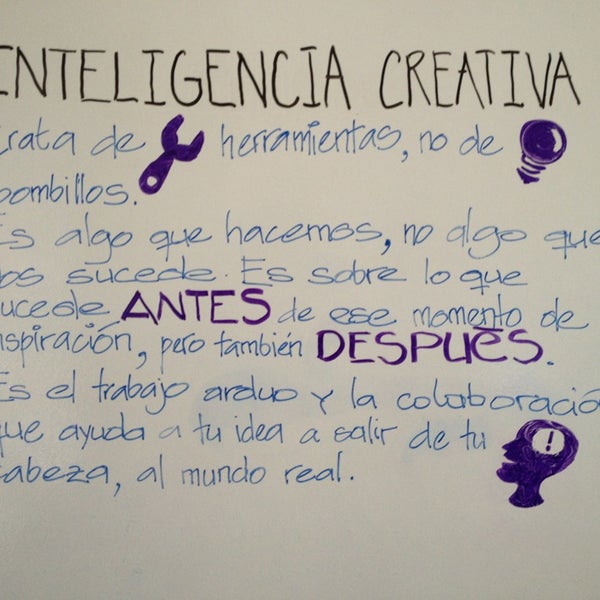 INTELIGENCIA CREATIVA
trata de herramientas, no de
bombillos.
Es algo que hacemos, no algo que
nos sucede. Es sobre lo que
sucede ANTES de ese momento de
inspiración, pero también DESPUÉS.
Es el trabajo arduo y la colaboración
que ayuda a tu idea a salir de tu
cabeza, al mundo real.
!